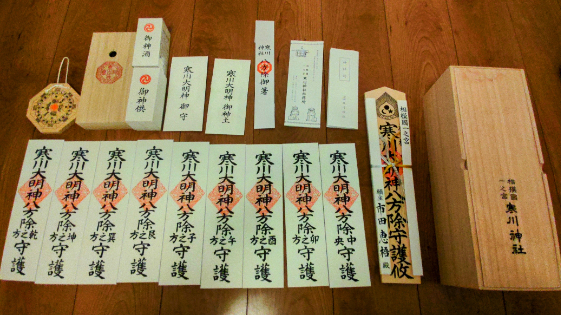 御神酒
御神供
寒川大明神 御守
寒川大明神 御神土
寒川神社 八方除御箸
寒川大明神八方除之乾之方守護
寒川大明神八方除之坤之方守護
寒川大明神八方除之巽之方守護
寒川大明神八方除之艮之方守護
寒川大明神八方除之子之方守護
寒川大明神八方除之午之方守護
寒川大明神八方除之酉之方守護
寒川大明神八方除之卯之方守護
寒川大明神八方除之中央守護
相模國一之宮
寒川大明神八方除守護攸
相模國一之宮
寒川神社